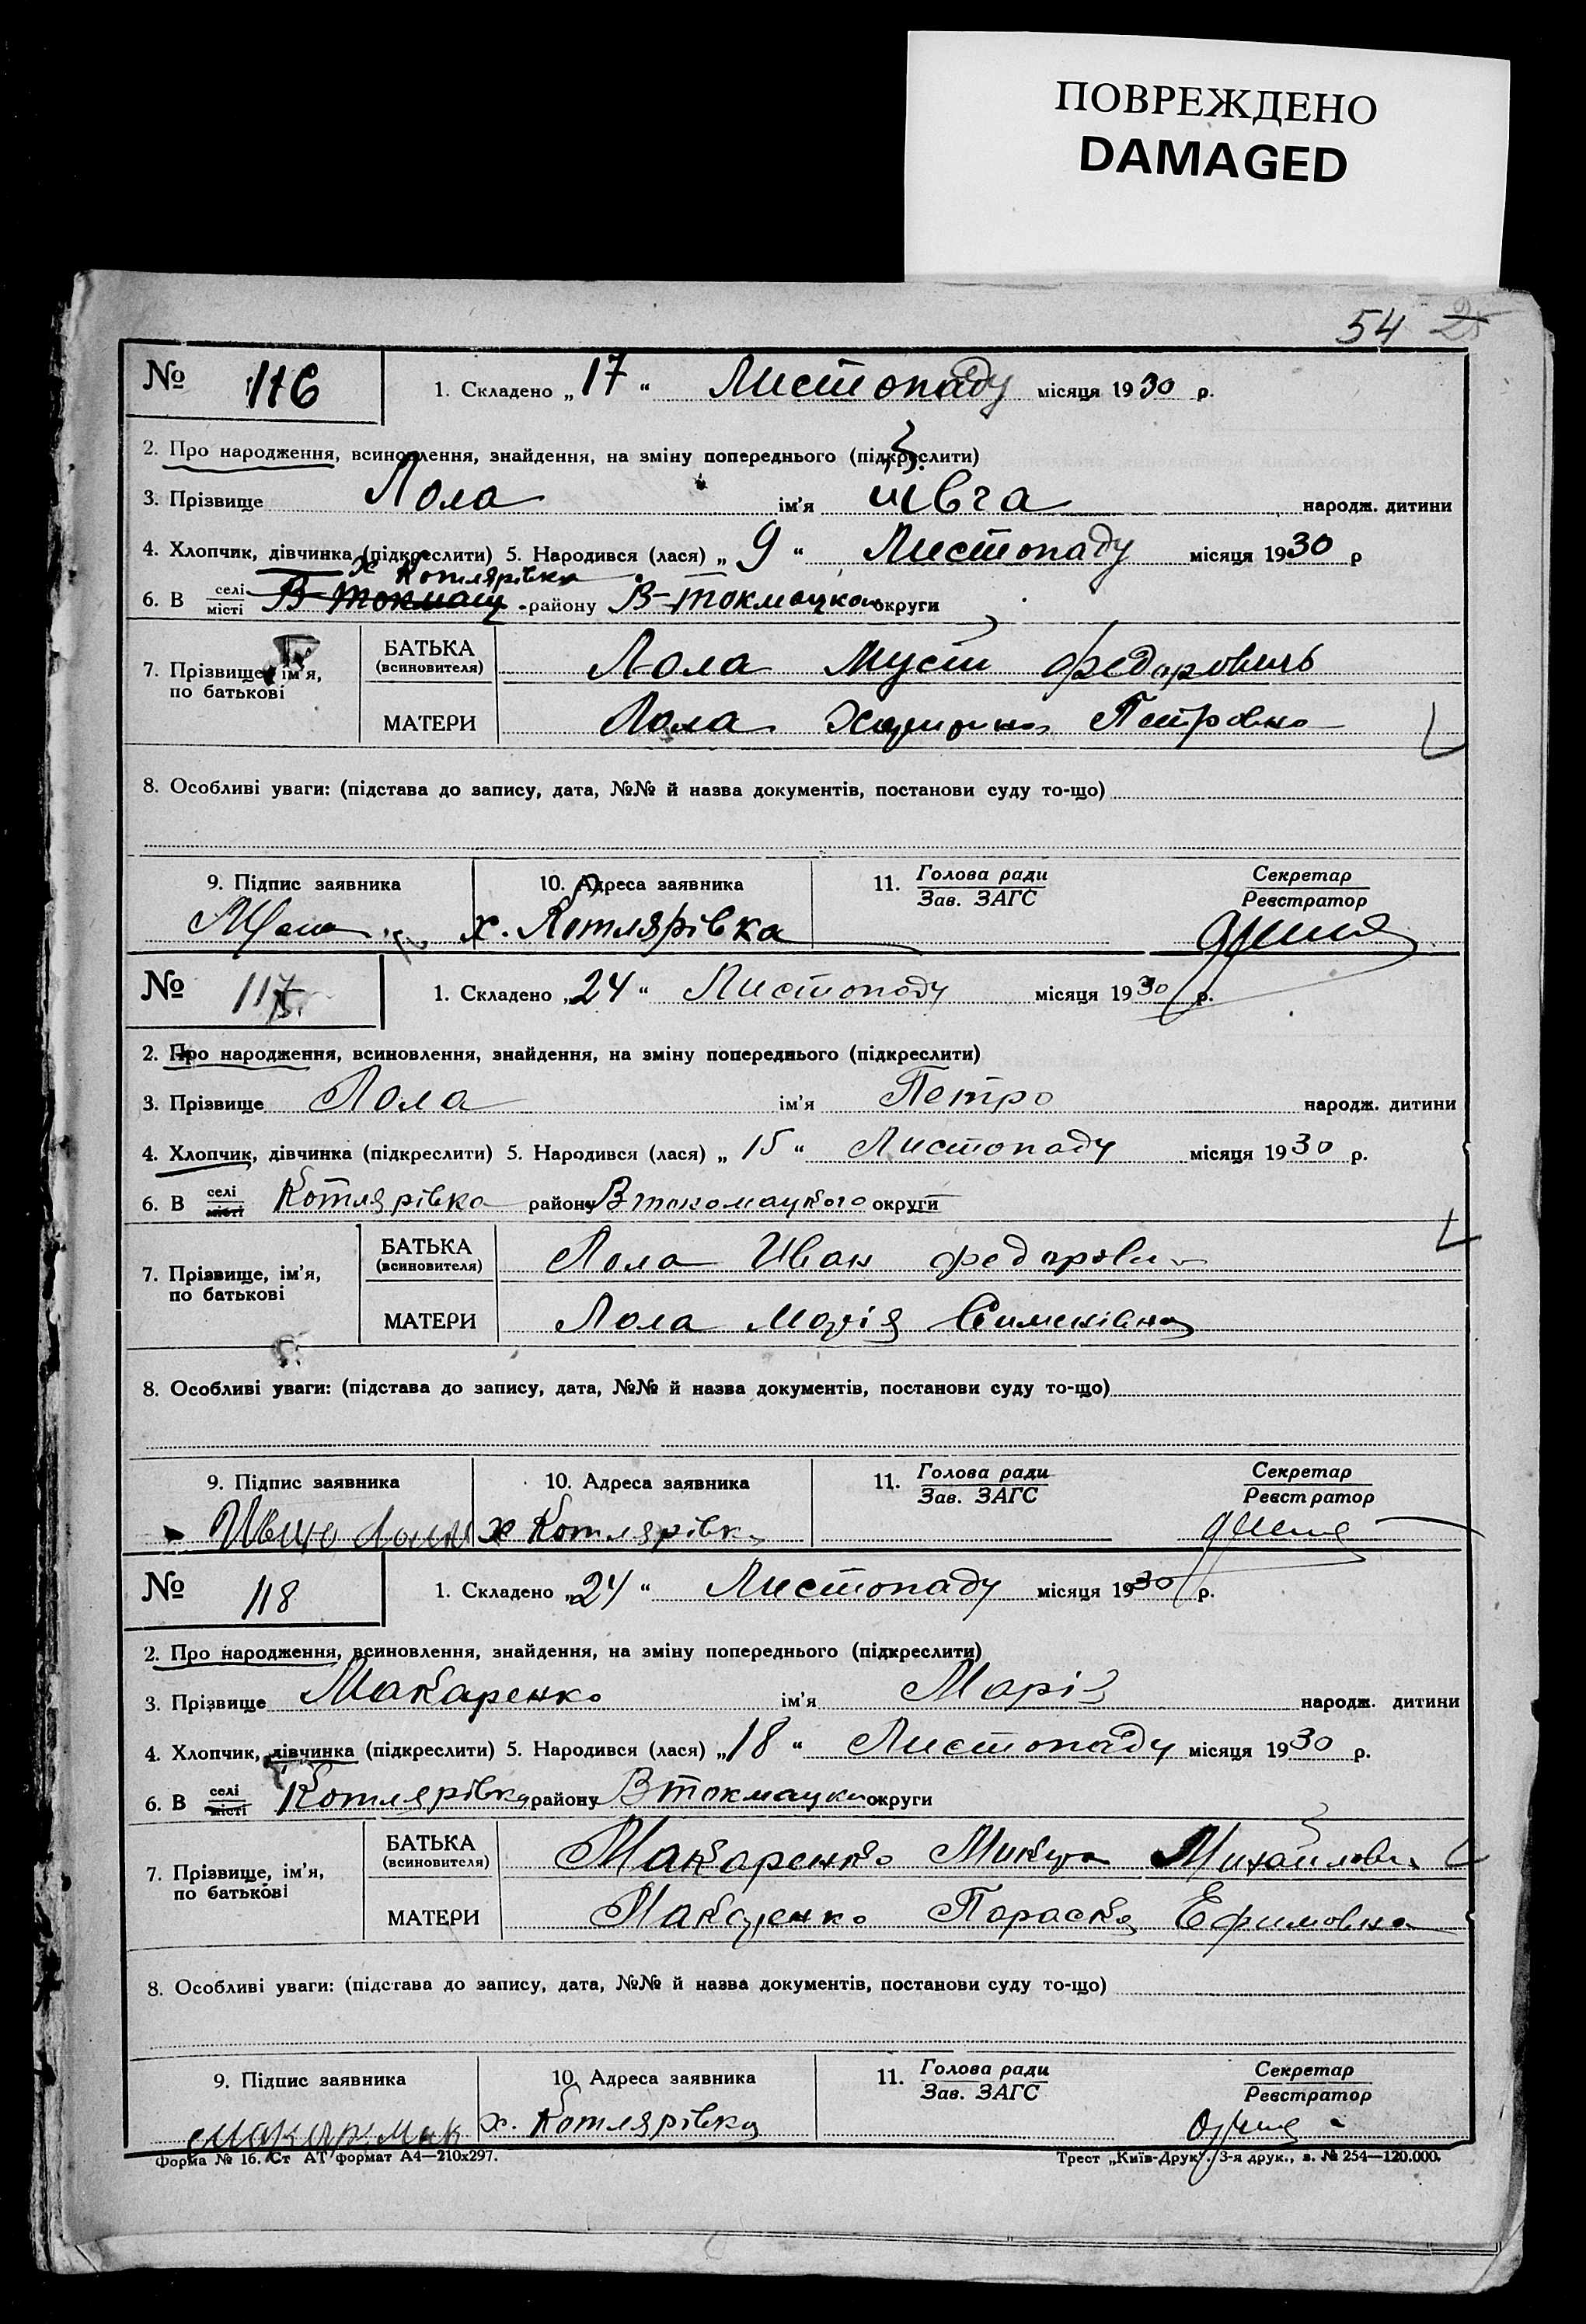 ПОВРЕЖДЕНО
DAMAGED
54 25
№ 116 1. Складено „17“ Листопаду місяця 1930 р.
2. Про народження, всиновлення, знайдення, на зміну попереднього (підкреслити)
3. Прізвище Лола ім'я народж. дитини
4. Хлопчик, дівчинка (підкреслити) 5. Народився (лася) „9“ Листопаду місяця 1930 р
х Котлярівка
6. В селі місті В-Токмац району В-Токмацком округи
7. Прізвище, ім'я, по батькові БАТЬКА (всиновителя) Лола Федорович
МАТЕРИ Лола Петровна
8. Особливі уваги: (підстава до запису, дата, №№ й назва документів, постанови суду то-що)
9. Підпис заявника 10. Адреса заявника 11. Голова ради Зав. ЗАГС Секретар Реєстратор
х. Котлярівка
№ 117 1. Складено „24“ Листопаду місяця 1930 р.
2. Про народження, всиновлення, знайдення, на зміну попереднього (підкреслити)
3. Прізвище Лола ім'я Петро народж. дитини
4. Хлопчик, дівчинка (підкреслити) 5. Народився (лася) „15“ Листопаду місяця 1930 р.
6. В селі місті Котлярівка району Втокомацкого округи
7. Прізвище, ім'я, по батькові БАТЬКА (всиновителя) Лола Иван Федорович
МАТЕРИ Лола Марія Сименівна
8. Особливі уваги: (підстава до запису, дата, №№ й назва документів, постанови суду то-що)
9. Підпис заявника 10. Адреса заявника 11. Голова ради Зав. ЗАГС Секретар Реєстратор
х Котлярівка
№ 118 1. Складено „24“ Листопаду місяця 1930 р.
2. Про народження, всиновлення, знайдення, на зміну попереднього (підкреслити)
3. Прізвище Макаренко ім'я Марія народж. дитини
4. Хлопчик, дівчинка (підкреслити) 5. Народився (лася) „18“ Листопаду місяця 1930 р.
6. В селі місті Котлярівка району Втокмацки округи
7. Прізвище, ім'я, по батькові БАТЬКА (всиновителя) Макаренко Микита Михайлович
МАТЕРИ Макаренко Параска Ефимовна
8. Особливі уваги: (підстава до запису, дата, №№ й назва документів, постанови суду то-що)
9. Підпис заявника 10. Адреса заявника 11. Голова ради Зав. ЗАГС Секретар Реєстратор
х. Котлярівка
Форма № 16. Ст АТ формат А4—210х297. Трест „Київ-Друк“. 3-я друк., з. № 254—120.000.